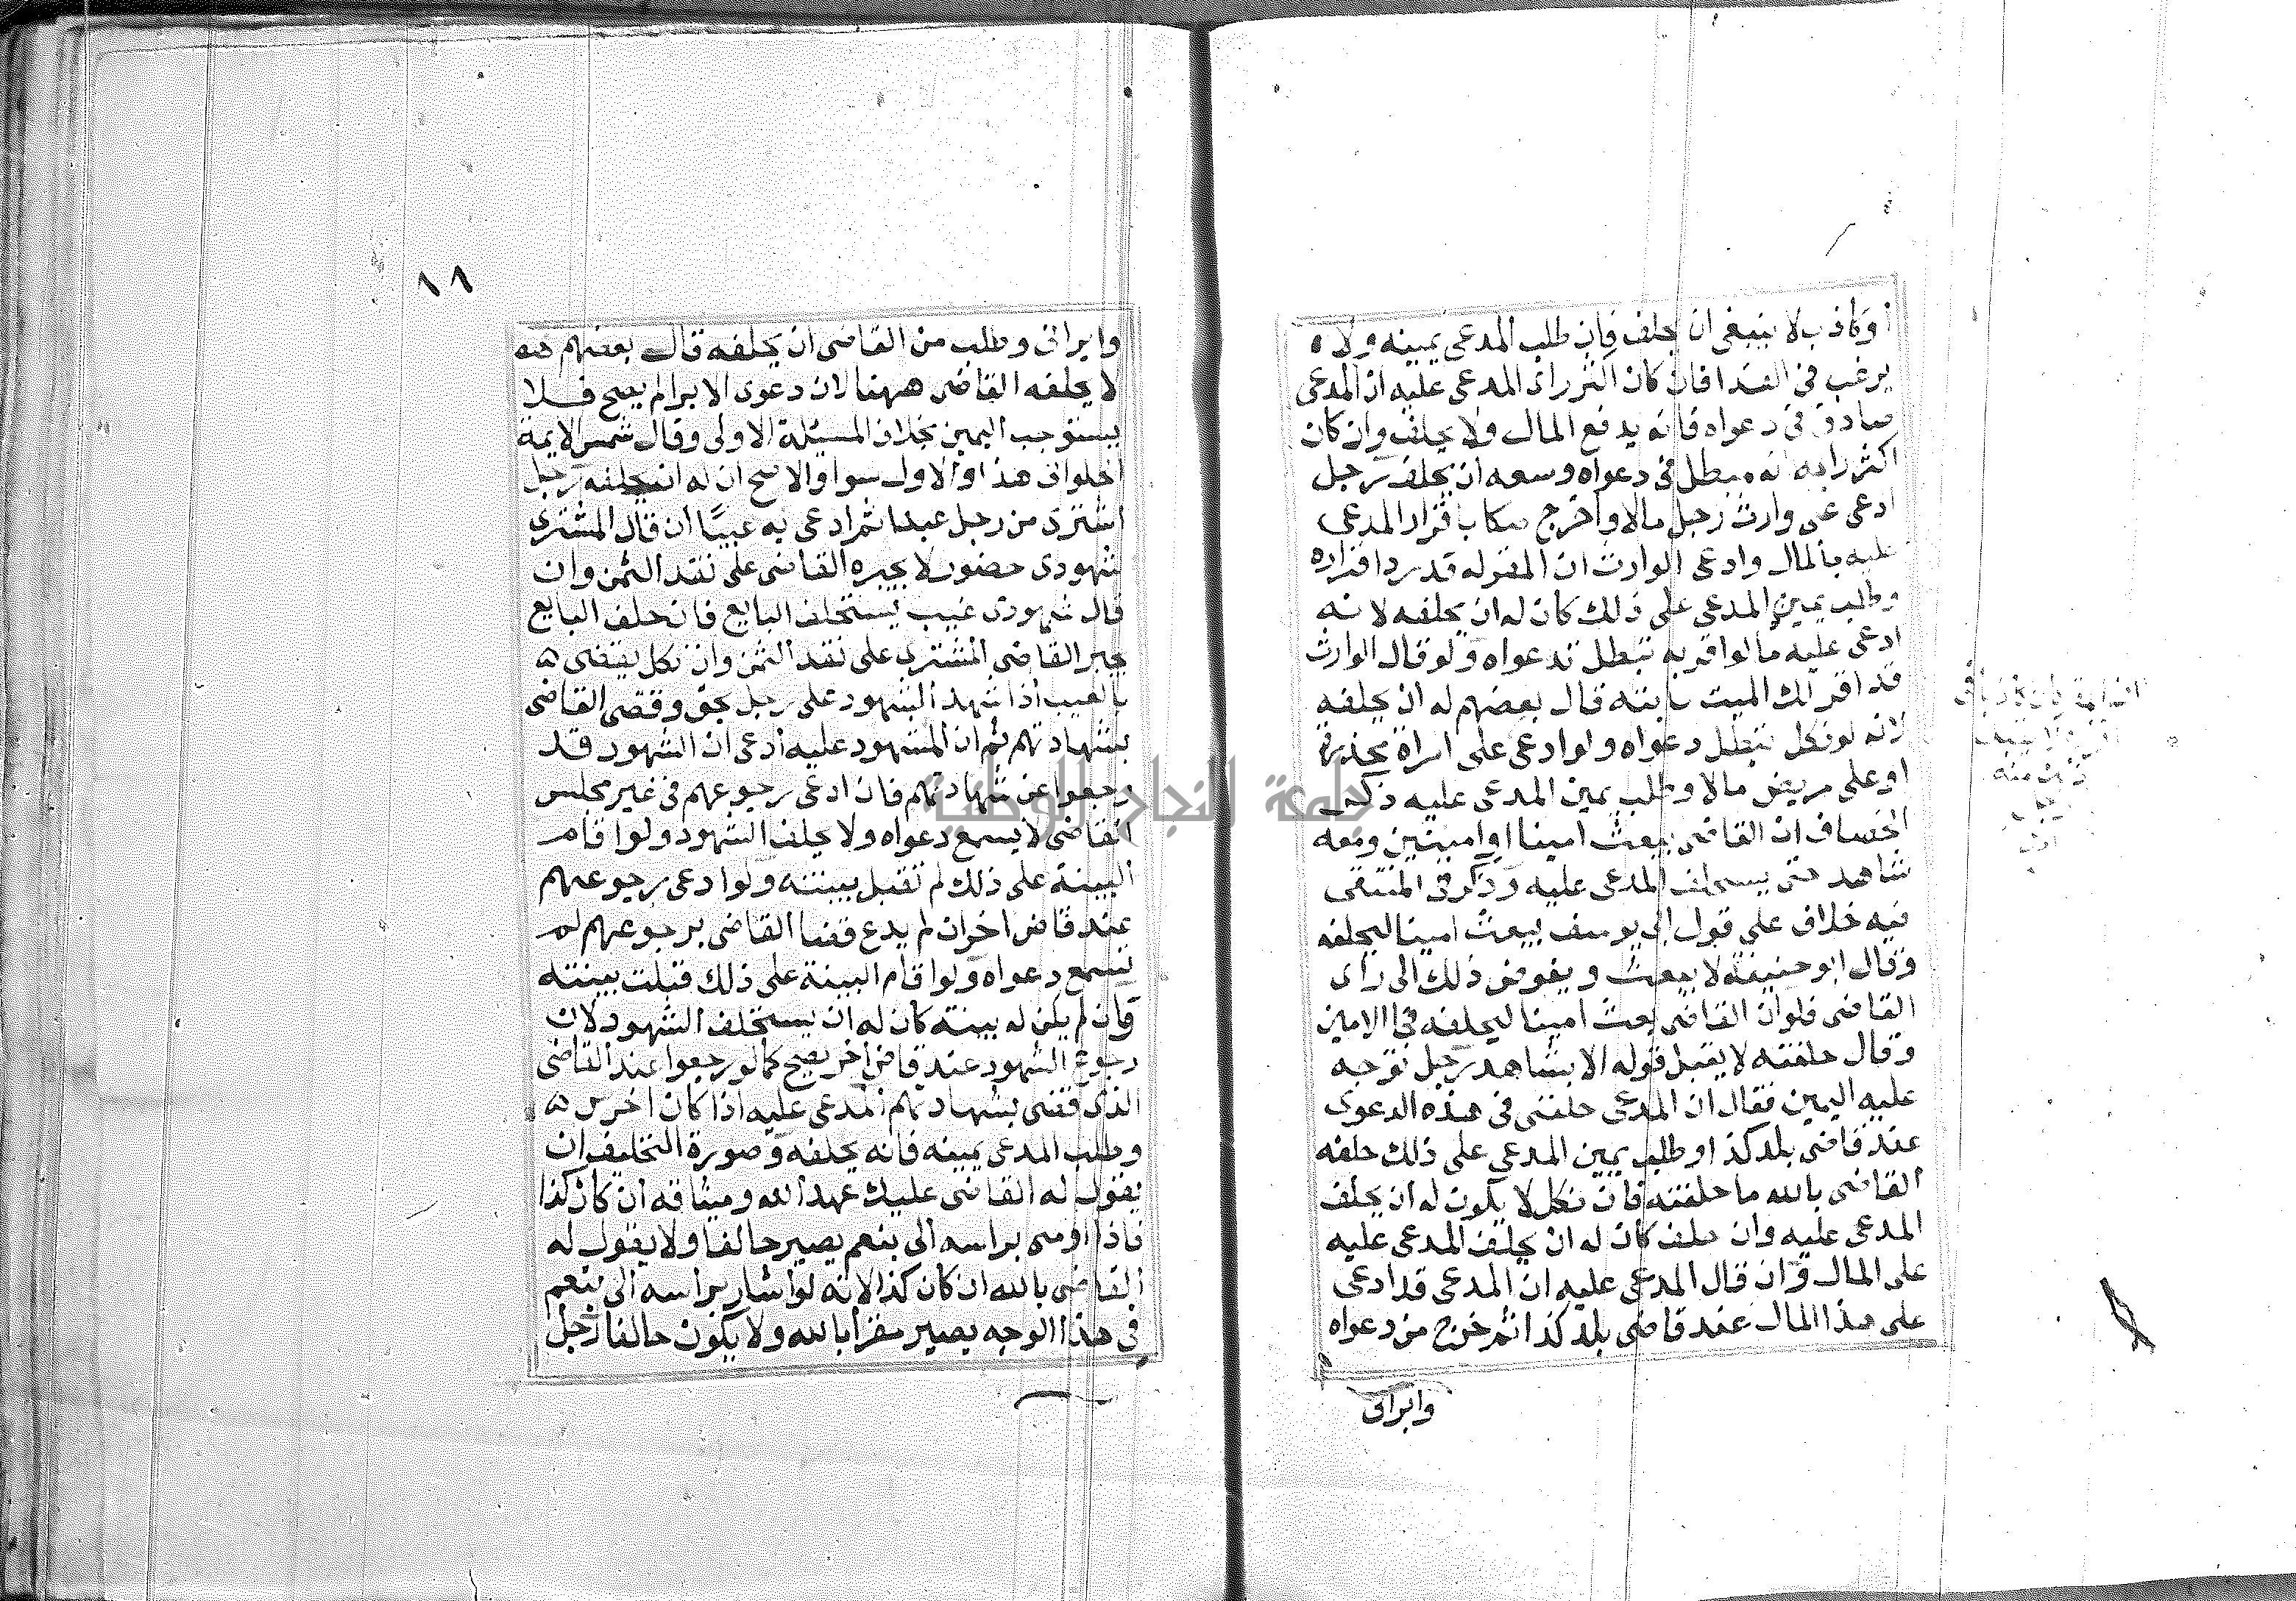 أو كاذب لا ينبغي ان يحلف فان طلب المدعى يمينه ولا ه
يرغب في الفدا فان كان اكثر راى المدعى عليه ان المدعى
صادق في دعواه فانه يدفع المال ولا يحلف وان كان
اكثر رايه انه مبطل في دعواه وسعه ان يحلف رجل
ادعى على وارث رجل مالا واخرج صكا باقرار المدعى
عليه بالمال وادعى الوارث ان المقرله قد رد اقراره
وطلب يمين المدعى على ذلك كان له ان يحلفه لانه
ادعى عليه ما لو اقر به تبطل دعواه ولو قال الوارث
قد اقر لك الميت قال بعضهم له ان يحلفه
لانه لو نكل تبطل دعواه ولو ادعى على امراة مخدرة
او على مريض مالا وطلب يمين المدعى عليه ذكر
الخصاف ان القاضى يبعث امينا او امينين ومعه
شاهد حتى يستحلف المدعى عليه وذكر في المنتقى
فيه خلاف على قول ابى يوسف يبعث امينا ليحلفه
وقال ابو حنيفة لا يبعث ويفوض ذلك الى راى
القاضى فلو ان القاضى بعث امينا ليحلفه فجا الامين
وقال حلفته لا يقبل قوله الا بشاهد رجل توجه
عليه اليمين فقال ان المدعى حلفنى في هذه الدعوى
عند قاضى بلد كذا وطلب يمين المدعى على ذلك حلفه
القاضى بالله ما حلفته فان نكل لا يكون له ان يحلف
المدعى عليه وان حلف كان له ان يحلف المدعى عليه
على المال وان قال المدعى عليه ان المدعى قد ادعى
على هذا المال عند قاضى بلد كذا ثم خرج من دعواه
وابرانى
١١
وابرانى وطلب من القاضى ان يحلفه قال بعضهم هه
لا يحلفه القاضى ههنا لان دعوى الابرا لم يصح فلا
يستوجب اليمين بخلاف المسئلة الاولى وقال شمس الايمة
الحلوانى هذا والاول سوا والاصح ان له ان يحلفه رجل
اشترى من رجل عبدا ثم ادعى به عيبًا ان قال المشترى
شهودى حضور لا يجبره القاضى على نقد الثمن وان
قال شهودى غيب يستحلف البايع فان حلف البايع
يجبر القاضى المشترى على نقد الثمن وان نكل يقضى ه
بالعيب اذا شهد الشهود على رجل بحق وقضى القاضى
بشهادتهم ثم ان المشهود عليه ادعى ان الشهود قد
رجعوا عن شهادتهم فان ادعى رجوعهم في غير مجلس
القاضى لا يسمع دعواه ولا يحلف الشهود ولو اقام
البينة على ذلك لم تقبل بينته ولو ادعى رجوعهم
عند قاض اخر ان لم يدع قضا القاضى برجوعهم لم
تسمع دعواه ولو اقام البينة على ذلك قبلت بينته
فان لم يكن له بينة كان له ان يستحلف الشهود لان
رجوع الشهود عند قاض اخر يصح كما لو رجعوا عند القاضى
الذى قضى بشهادتهم المدعى عليه اذا كان اخرس ه
وطلب المدعى يمينه فانه يحلفه وصورة التحليف ان
يقول له القاضى عليك عهد الله وميثاقه ان كان كذا
فاذا اومى براسه اى بنعم يصير حالفا ولا يقول له
القاضى بالله ان كان كذا لانه لو اشار براسه اى بنعم
في هذا الوجه يصير مقرا بالله ولا يكون حالفا رجل
جامعة النجاح الوطنية